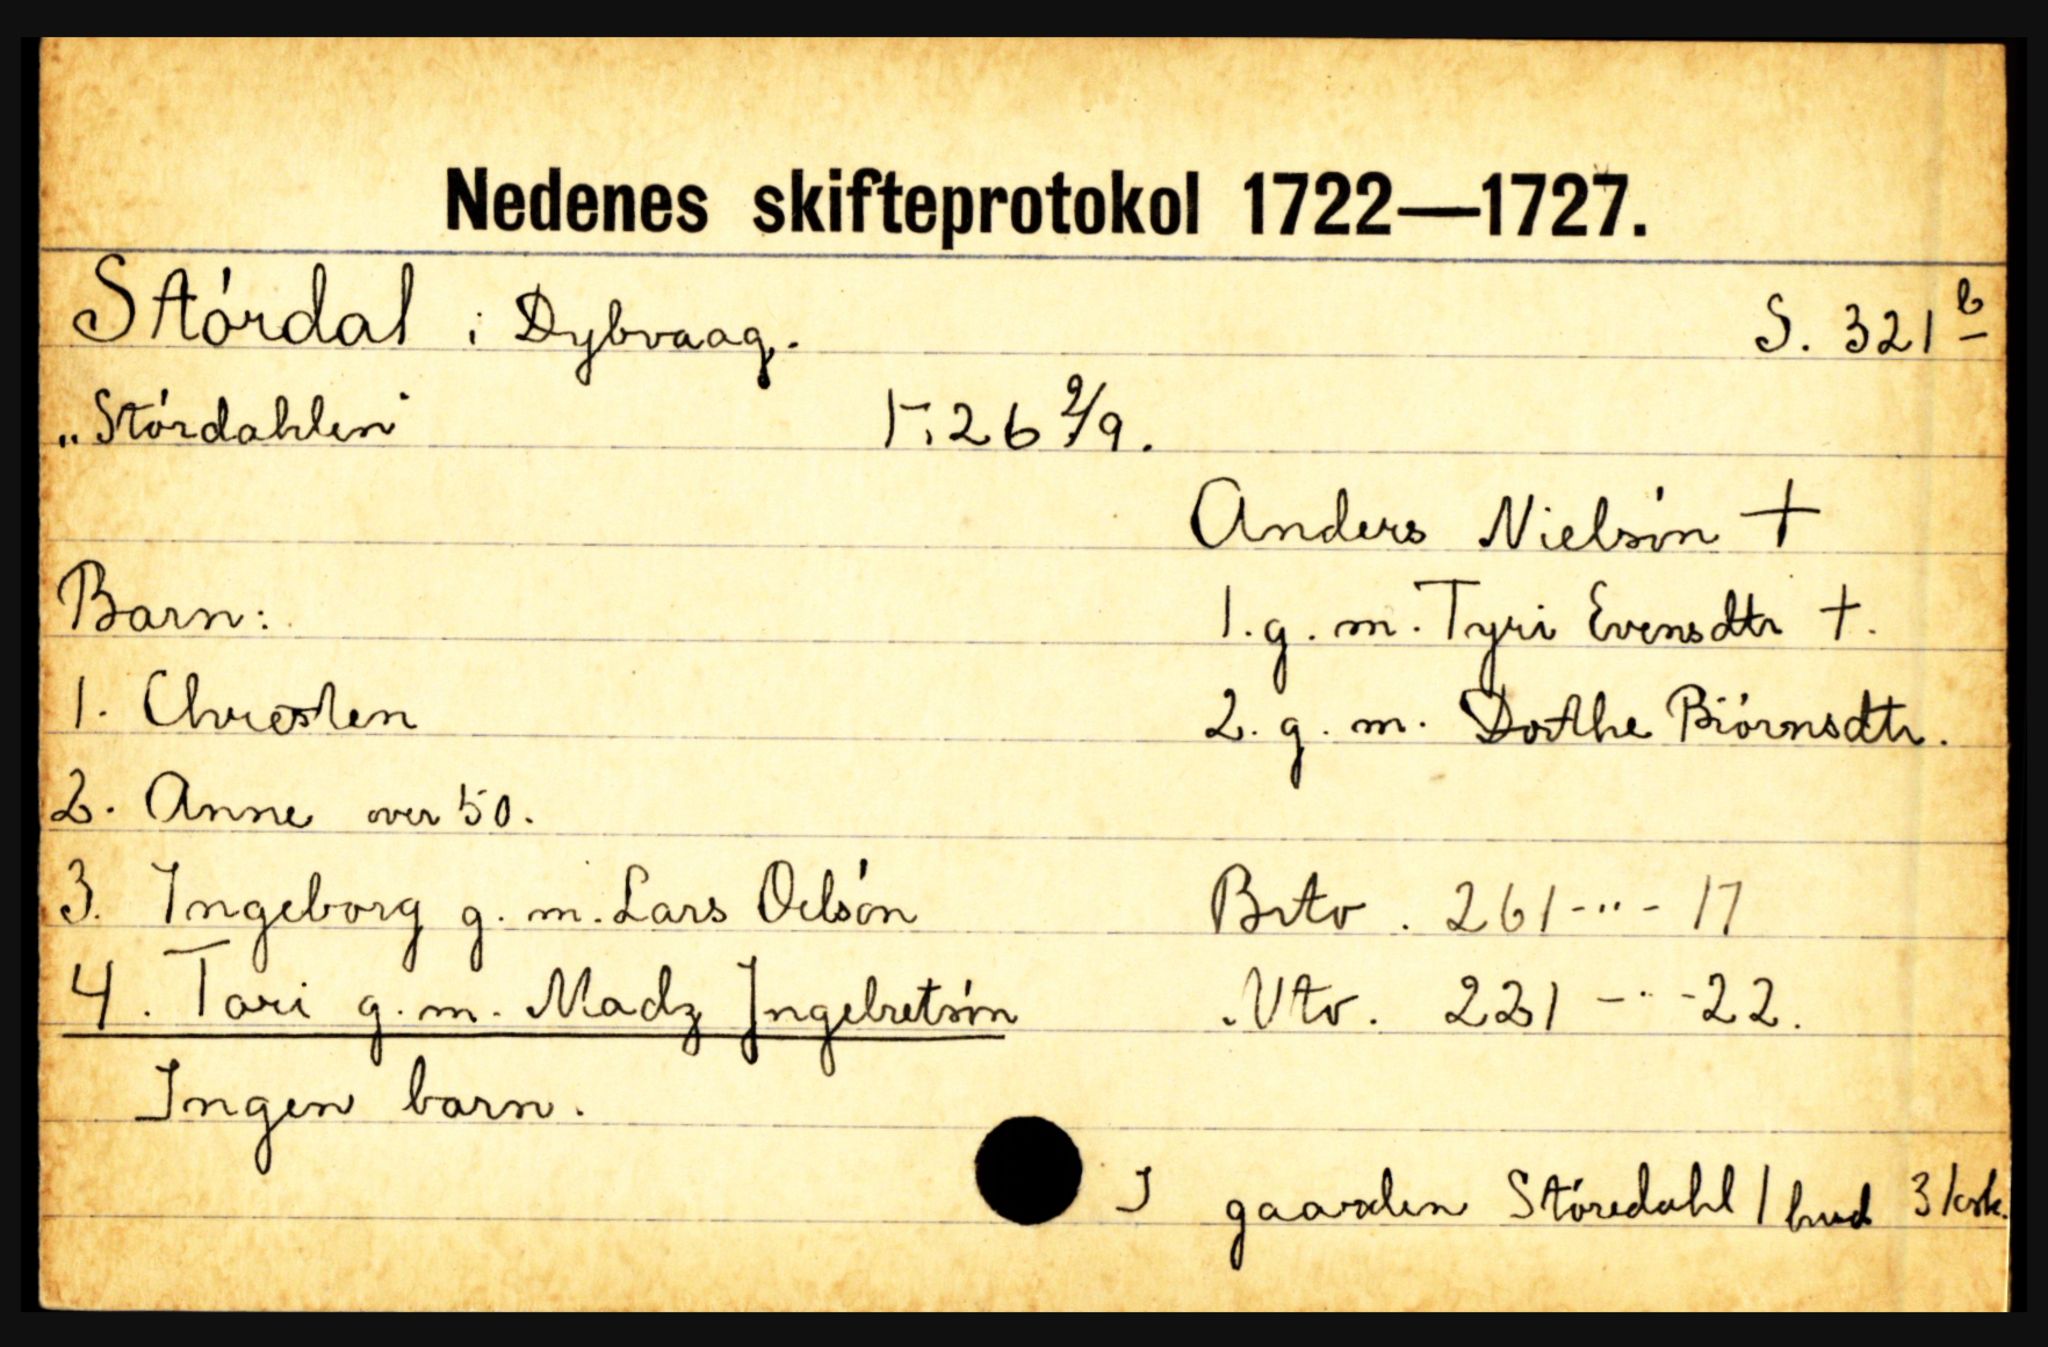 Nedenes skifteprotokol 1722—1727.
Stórdal i Dybvaag. S. 321 b
"Stórdahlen" 1726 2/9.
Anders Nielsón +
Barn: 1. g. m. Tyri Evensdtr +.
1. Chresten 2. g. m. Dorthe Biórnsdtr.
2. Anne over 50.
3. Ingeborg g. m. Lars Oelsón Brto. 261-"-17
4. Tari g. m. Madz Ingebretsón Nto. 231-"-22.
Ingen barn.
I gaarden Stóredahl 1 hud 3 krsk.